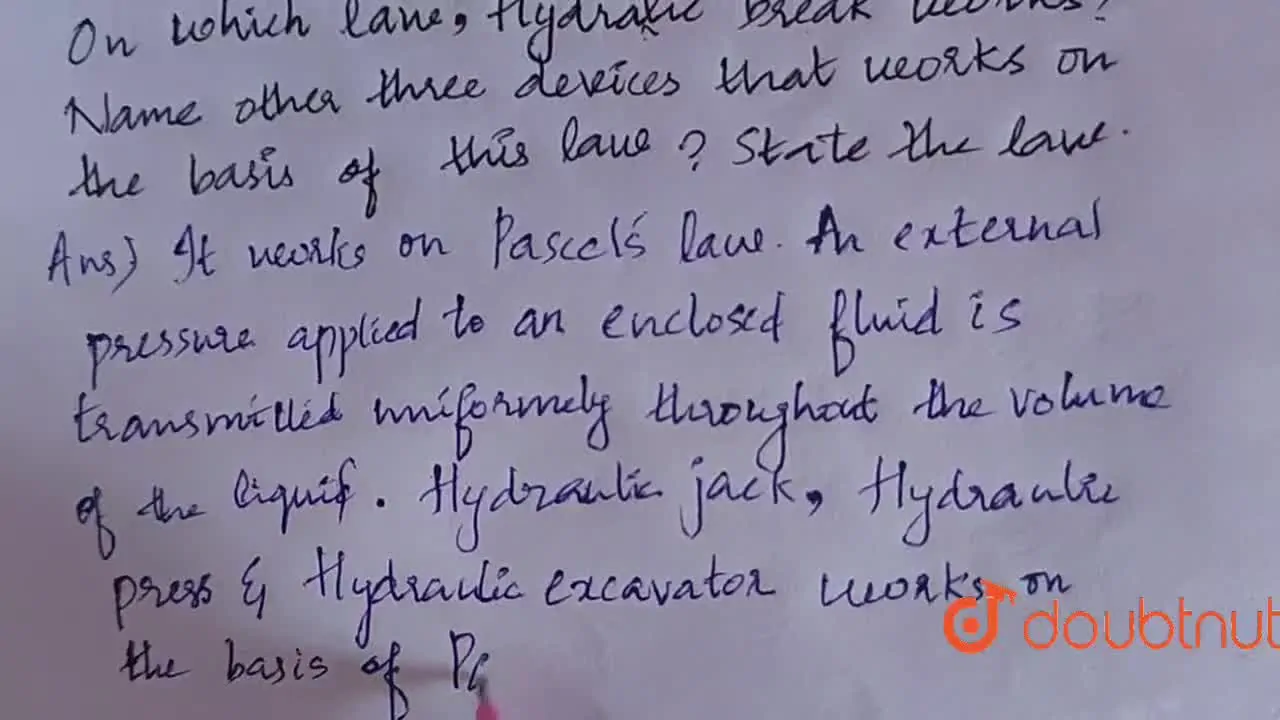 On which law, Hydralic break works?
Name other three devices that works on
the basis of this law? State the law.
Ans) It works on Pascel's law. An external
pressure applied to an enclosed fluid is
transmitted uniformely throughout the volume
of the liquid. Hydraulic jack, Hydraulic
press & Hydraulic excavator works on
the basis of Pa
doubtnut